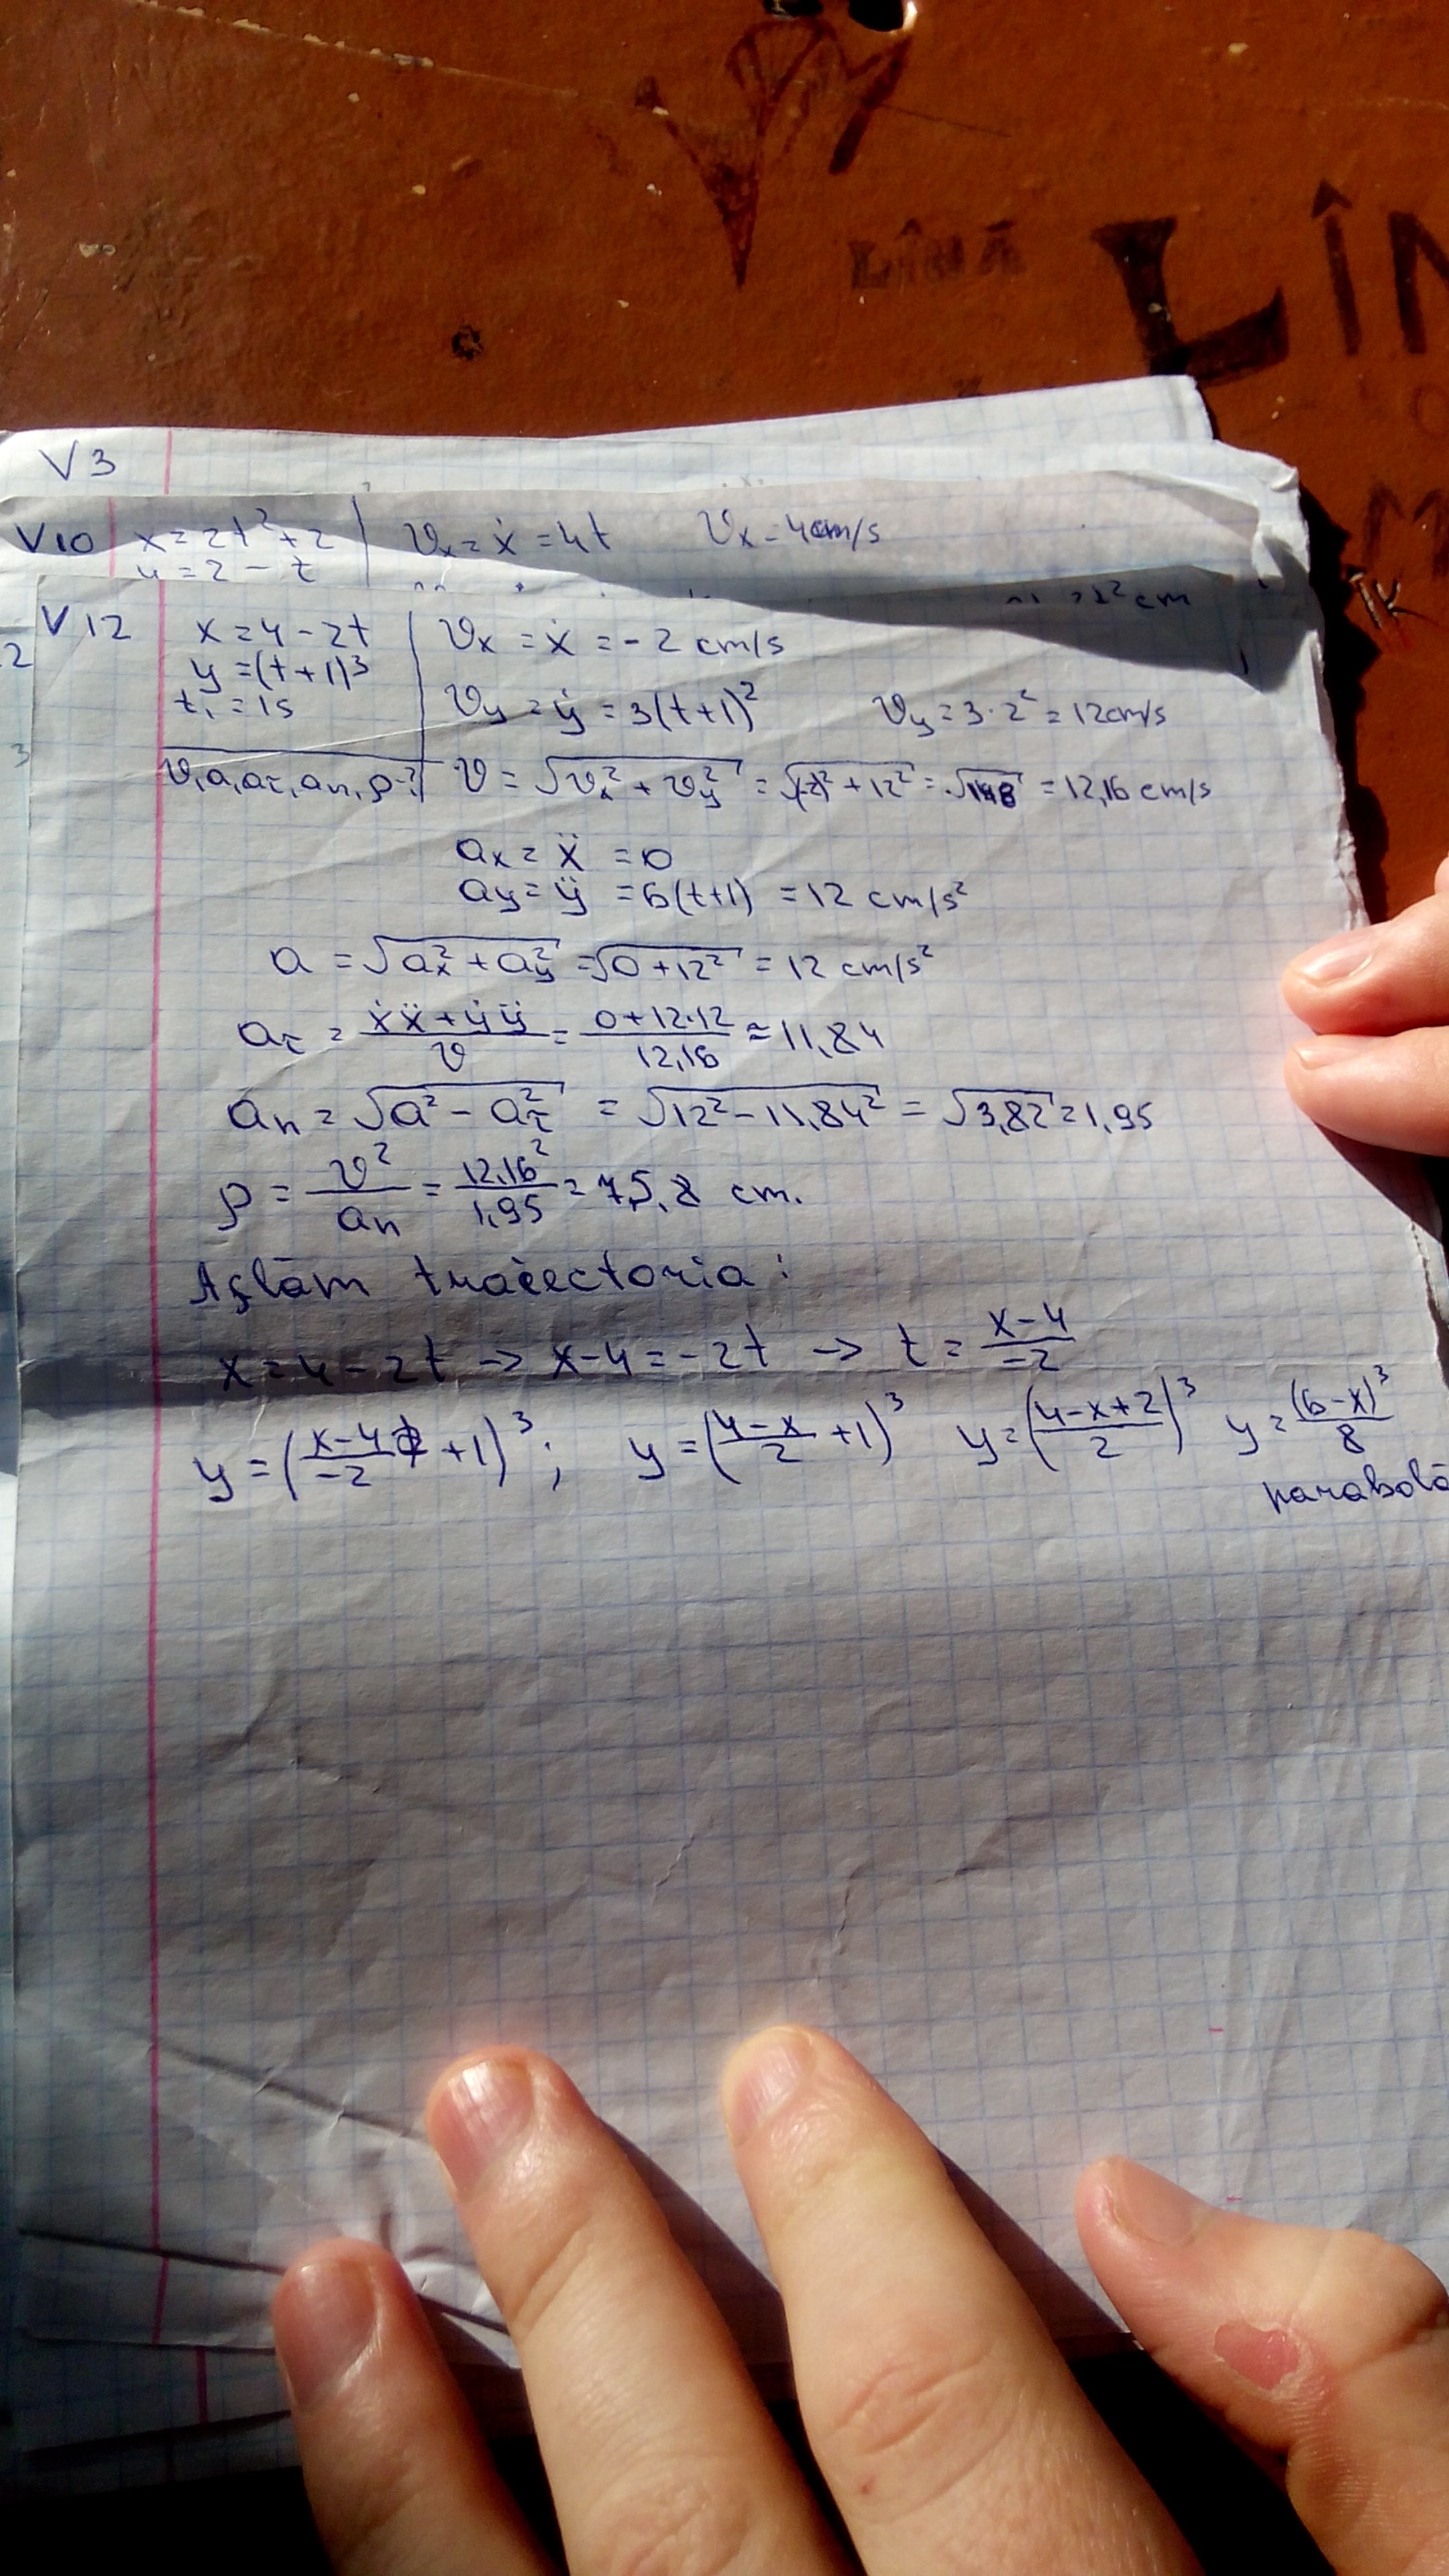 LÎNĂ
LÎN
V3
V10 x=2t²+2 vx=ẋ=4t vx=4cm/s
y=2-t
V12 x=4-2t vx=ẋ=-2 cm/s
y=(t+1)³
t₁=1s vy=ẏ=3(t+1)² vy=3·2²=12cm/s
v,a,aτ,an,ρ-? v=√(vx²+vy²)=√((-2)²+12²)=√148=12,16 cm/s
ax=ẍ=0
ay=ÿ=6(t+1)=12 cm/s²
a=√(ax²+ay²)=√(0+12²)=12 cm/s²
aτ=(ẋẍ+ẏÿ)/v=(0+12·12)/12,16≈11,84
an=√(a²-aτ²)=√(12²-11,84²)=√3,82=1,95
ρ=v²/an=12,16²/1,95=75,8 cm.
Aflăm traiectoria:
x=4-2t→x-4=-2t→t=(x-4)/-2
y=((x-4)/-2+1)³; y=((4-x)/2+1)³ y=((4-x+2)/2)³ y=(6-x)³/8
parabolă